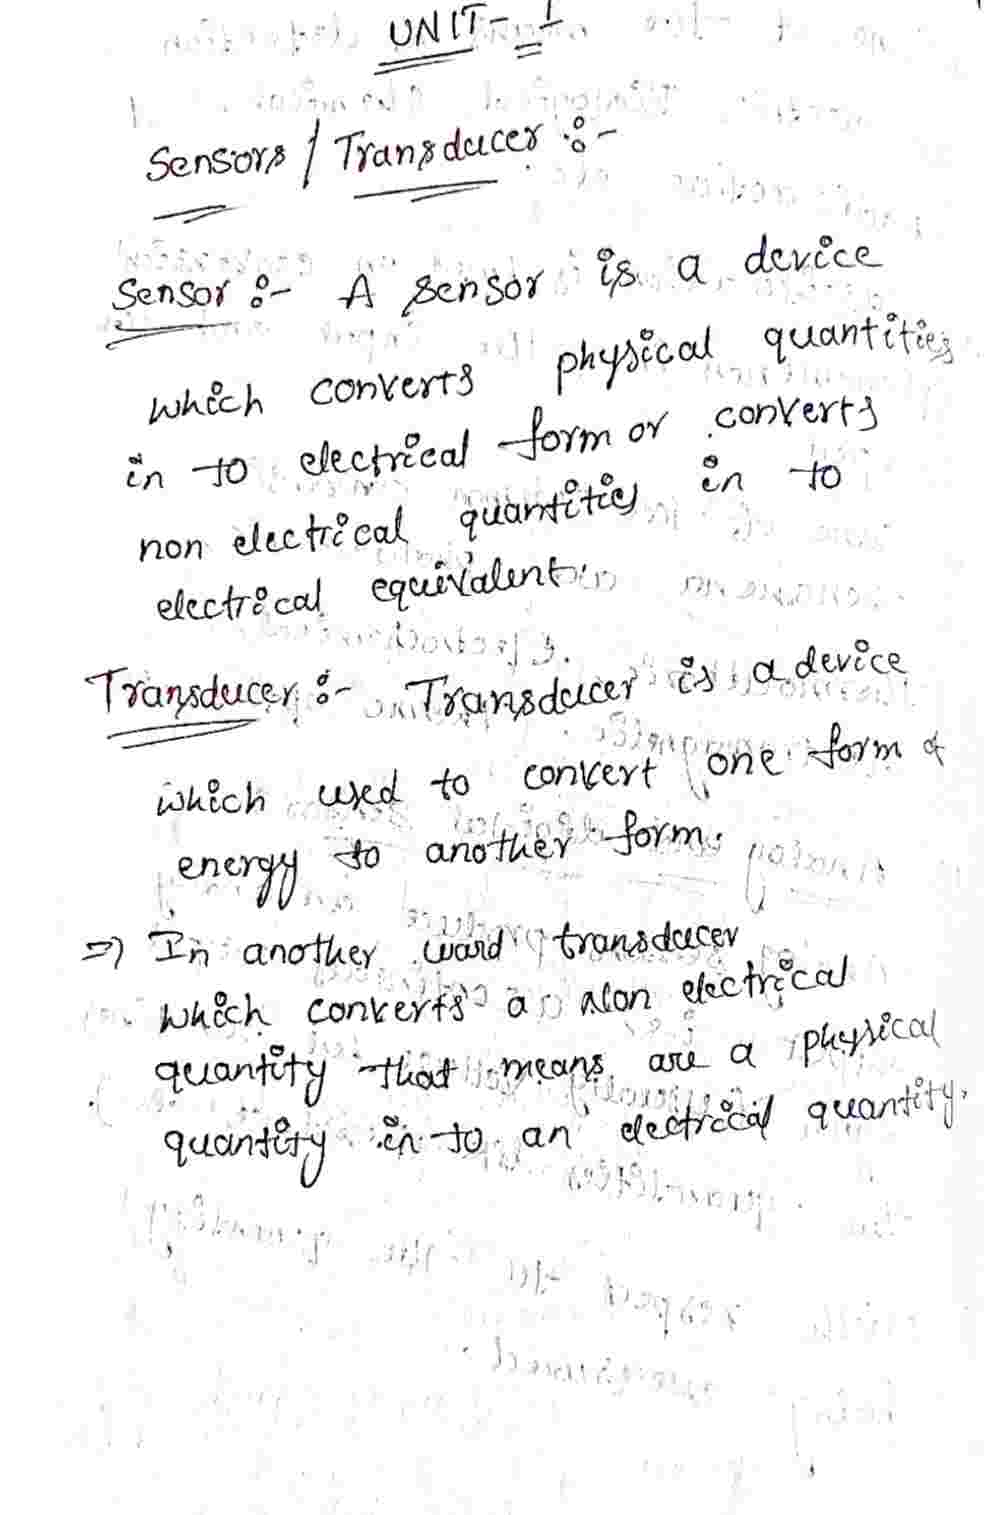 UNIT-1
Sensors / Transducer :-
Sensor :- A sensor is a device
which converts physical quantities
in to electrical form or converts
non electrical quantities in to
electrical equivalent.
Transducer :- Transducer is a device
which used to convert one form of
energy to another form.
=> In another word transducer
which converts a non electrical
quantity that means are a physical
quantity in to an electrical quantity.